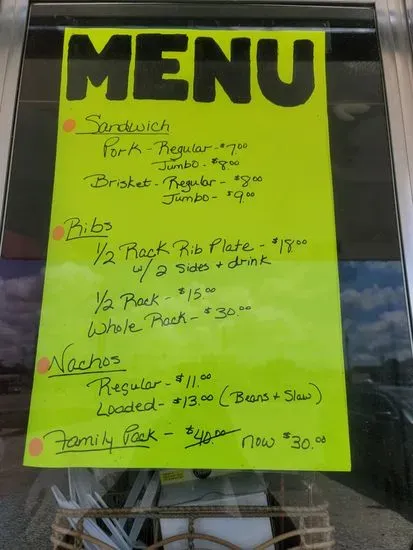 MENU
Sandwich
Pork - Regular - $7.00
Jumbo - $8.00
Brisket - Regular - $8.00
Jumbo - $9.00
Ribs
1/2 Rack Rib Plate - $18.00
w/ 2 sides + drink
1/2 Rack - $15.00
Whole Rack - $30.00
Nachos
Regular - $11.00
Loaded - $13.00 (Beans + Slaw)
Family Pack - $40.00 now $30.00